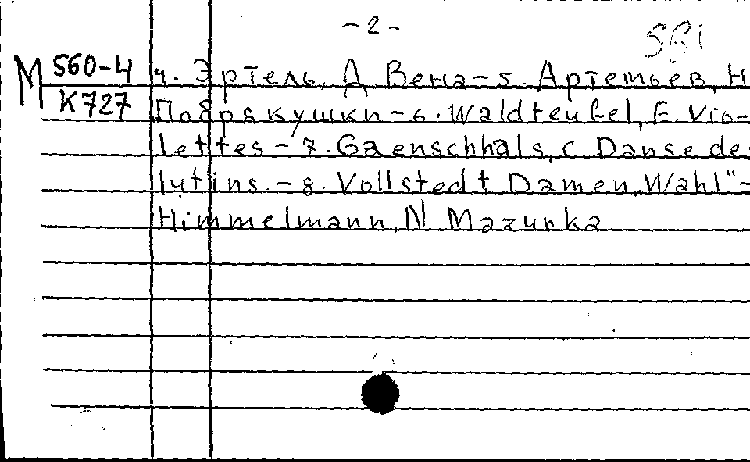 -2-
581
M 560-4 4. Эртель, А Вена-5. Артемьев, Н
К727 Побрякушки-6. Waldteufel, E Vio-
lettes-7. Gaenschhals, C Danse de
lutins.-8. Vollstedt Damen Wahl"-
Himmelmann, N Mazurka